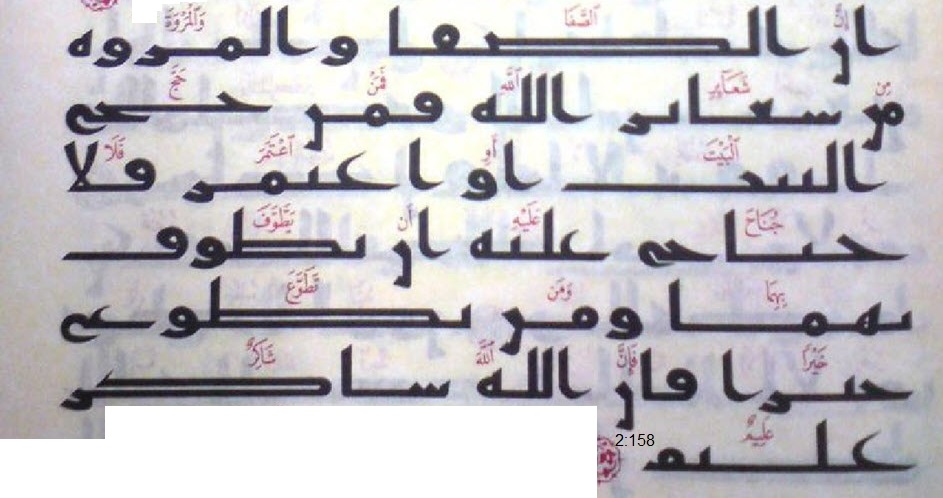 إِنَّ ٱلصَّفَا وَٱلْمَرْوَةَ
ان الصفا والمروه
مِن شَعَآئِرِ ٱللَّهِ فَمَنْ حَجَّ
من شعاير الله فمن حج
ٱلْبَيْتَ أَوِ ٱعْتَمَرَ فَلَا
البيت او اعتمر فلا
جُنَاحَ عَلَيْهِ أَن يَطَّوَّفَ
جناح عليه ان يطوف
بِهِمَا وَمَن تَطَوَّعَ
بهما ومن تطوع
خَيْرًا فَإِنَّ ٱللَّهَ شَاكِرٌ
خيرا فان الله شاكر
عَلِيمٌ
عليم 2:158